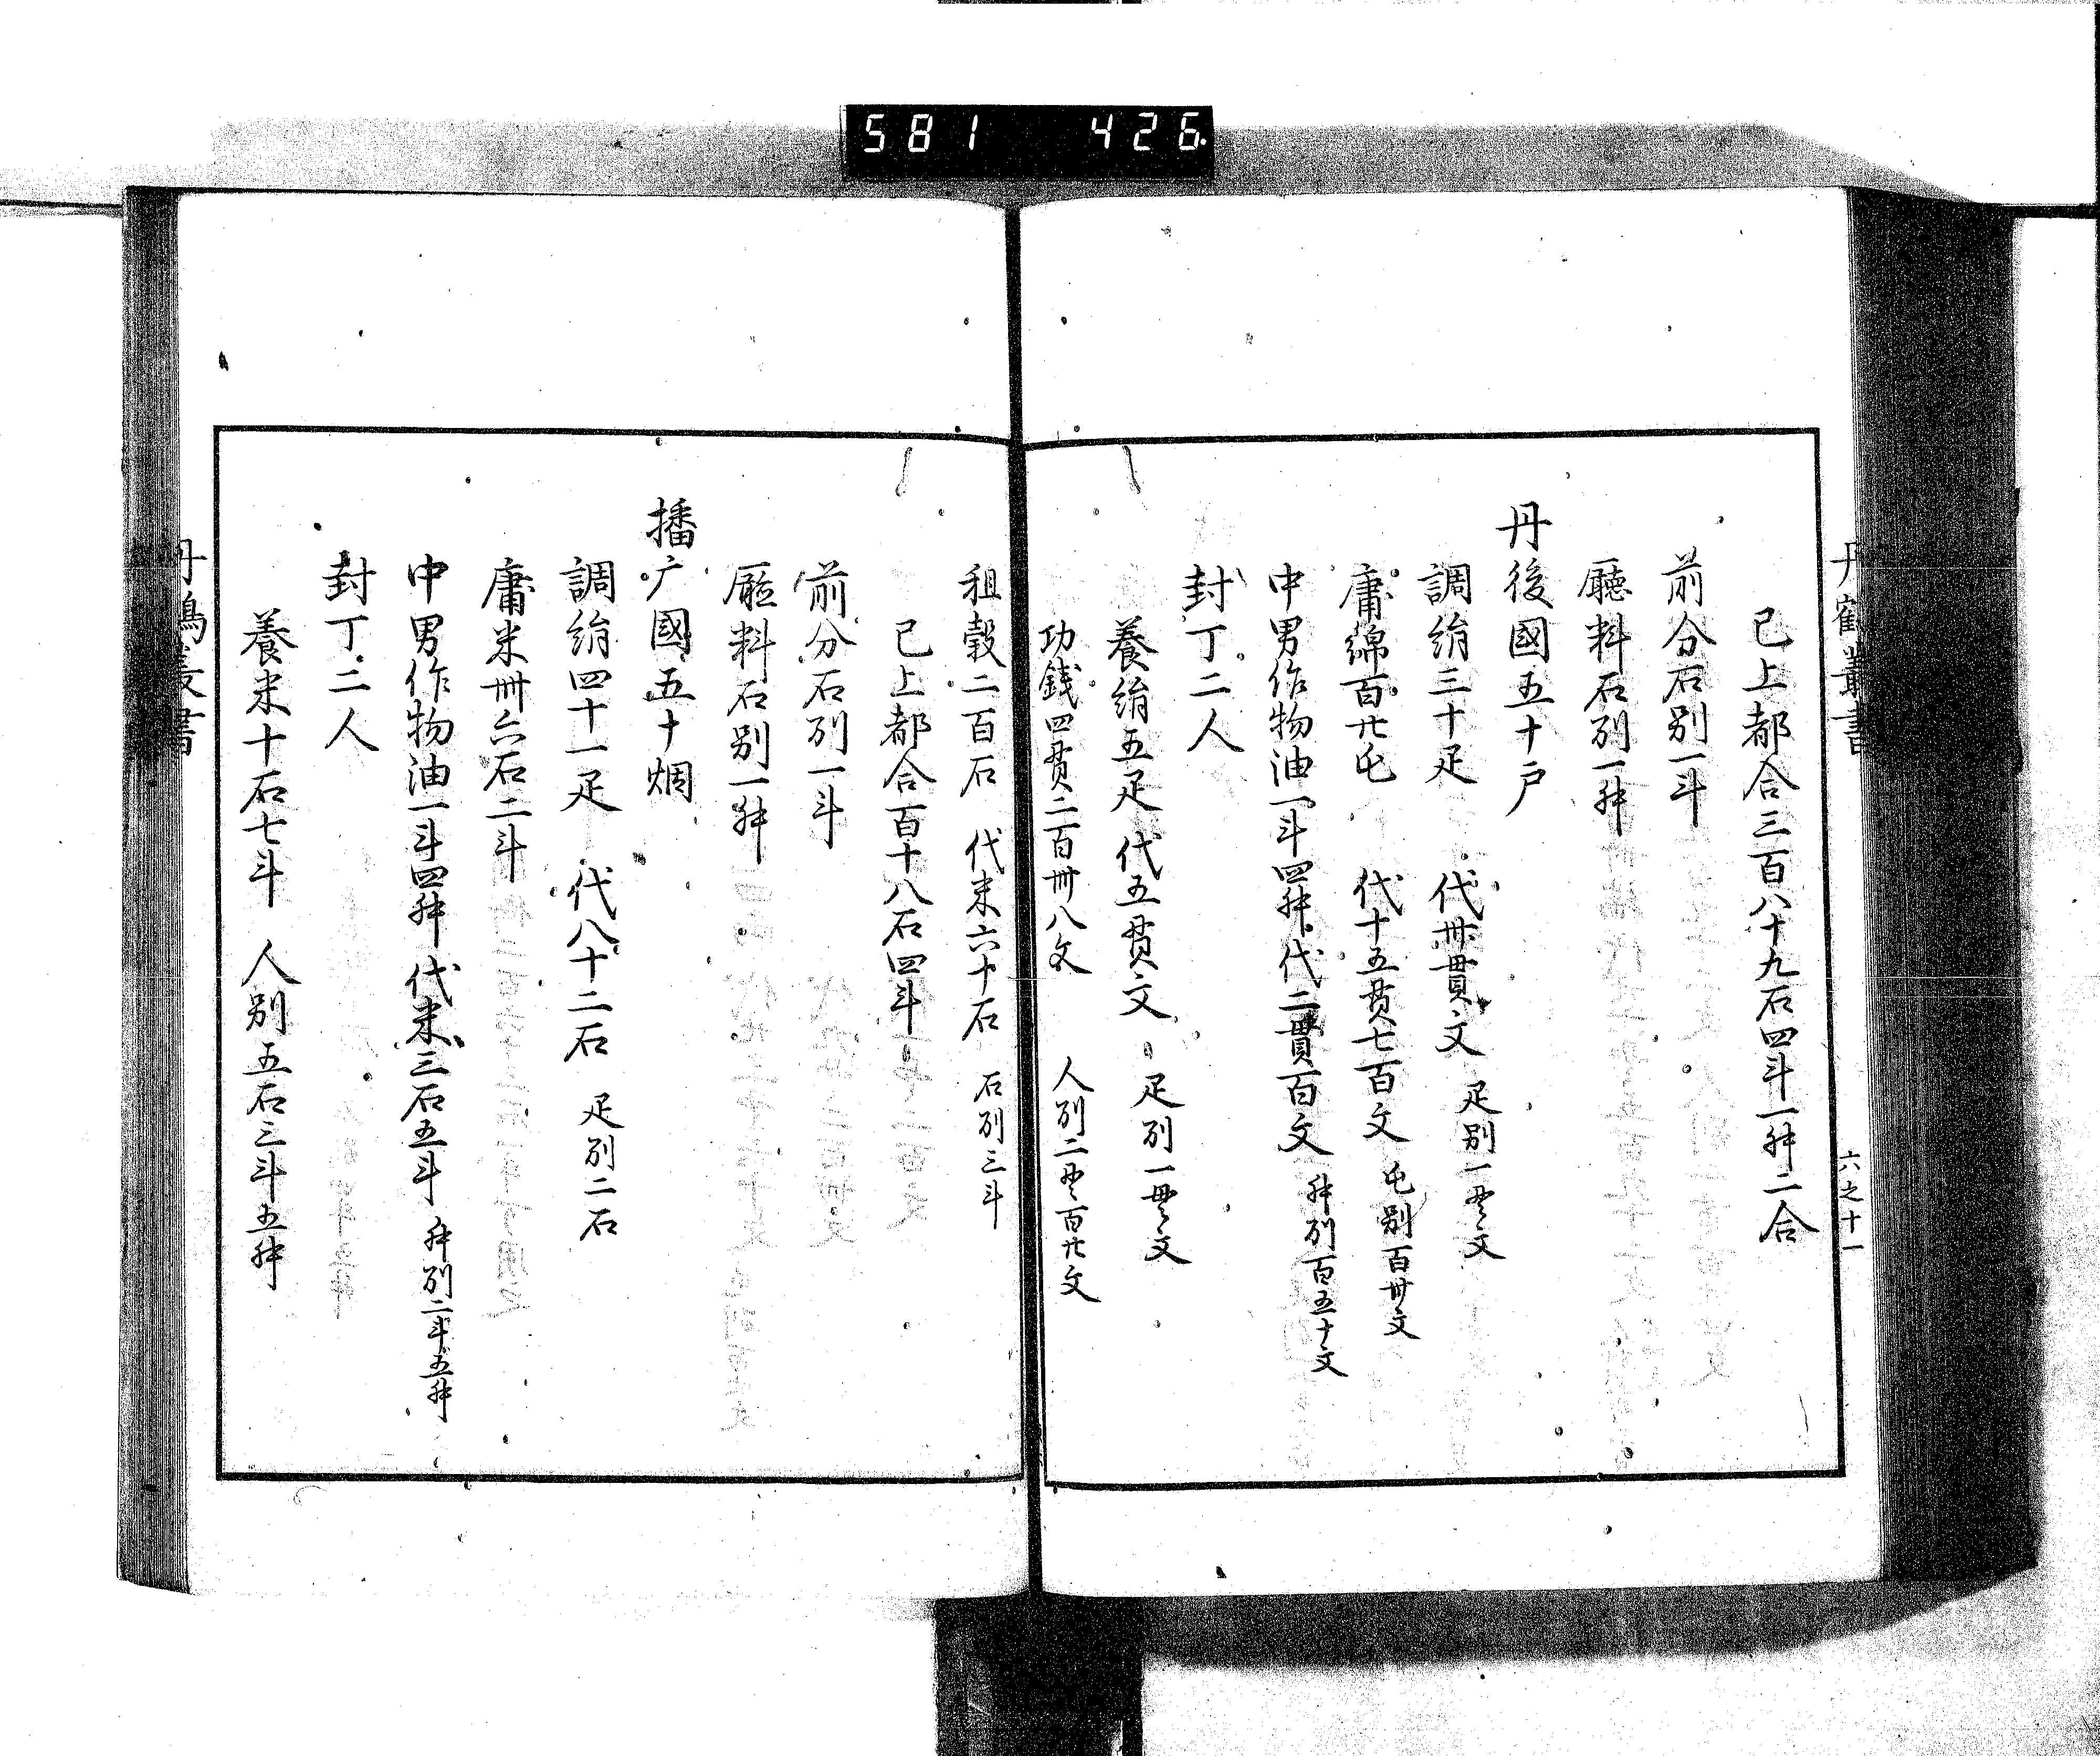 581 426
丹鶴叢書
六之十一
已上都合三百八十九石四斗一升二合
前分石別一斗
廳料石別一升
丹後國五十戸
調絹三十疋 代卅貫文 疋別一貫文
庸綿百廿屯 代十五貫七百文 屯別百卅文
中男作物油一斗四升 代二貫百文 升別百五十文
封丁二人
養絹五疋 代五貫文 疋別一貫文
功錢四貫二百卌八文 人別二貫百廿文
租穀二百石 代米六十石 石別三斗
已上都合百十八石四斗
前分石別一斗
廳料石別一升
播广國五十烟
調絹四十一疋 代八十二石 疋別二石
庸米卌六石二斗
中男作物油一斗四升 代米三石五斗 升別二斗五升
封丁二人
養米十石七斗 人別五石三斗五升
丹鶴叢書